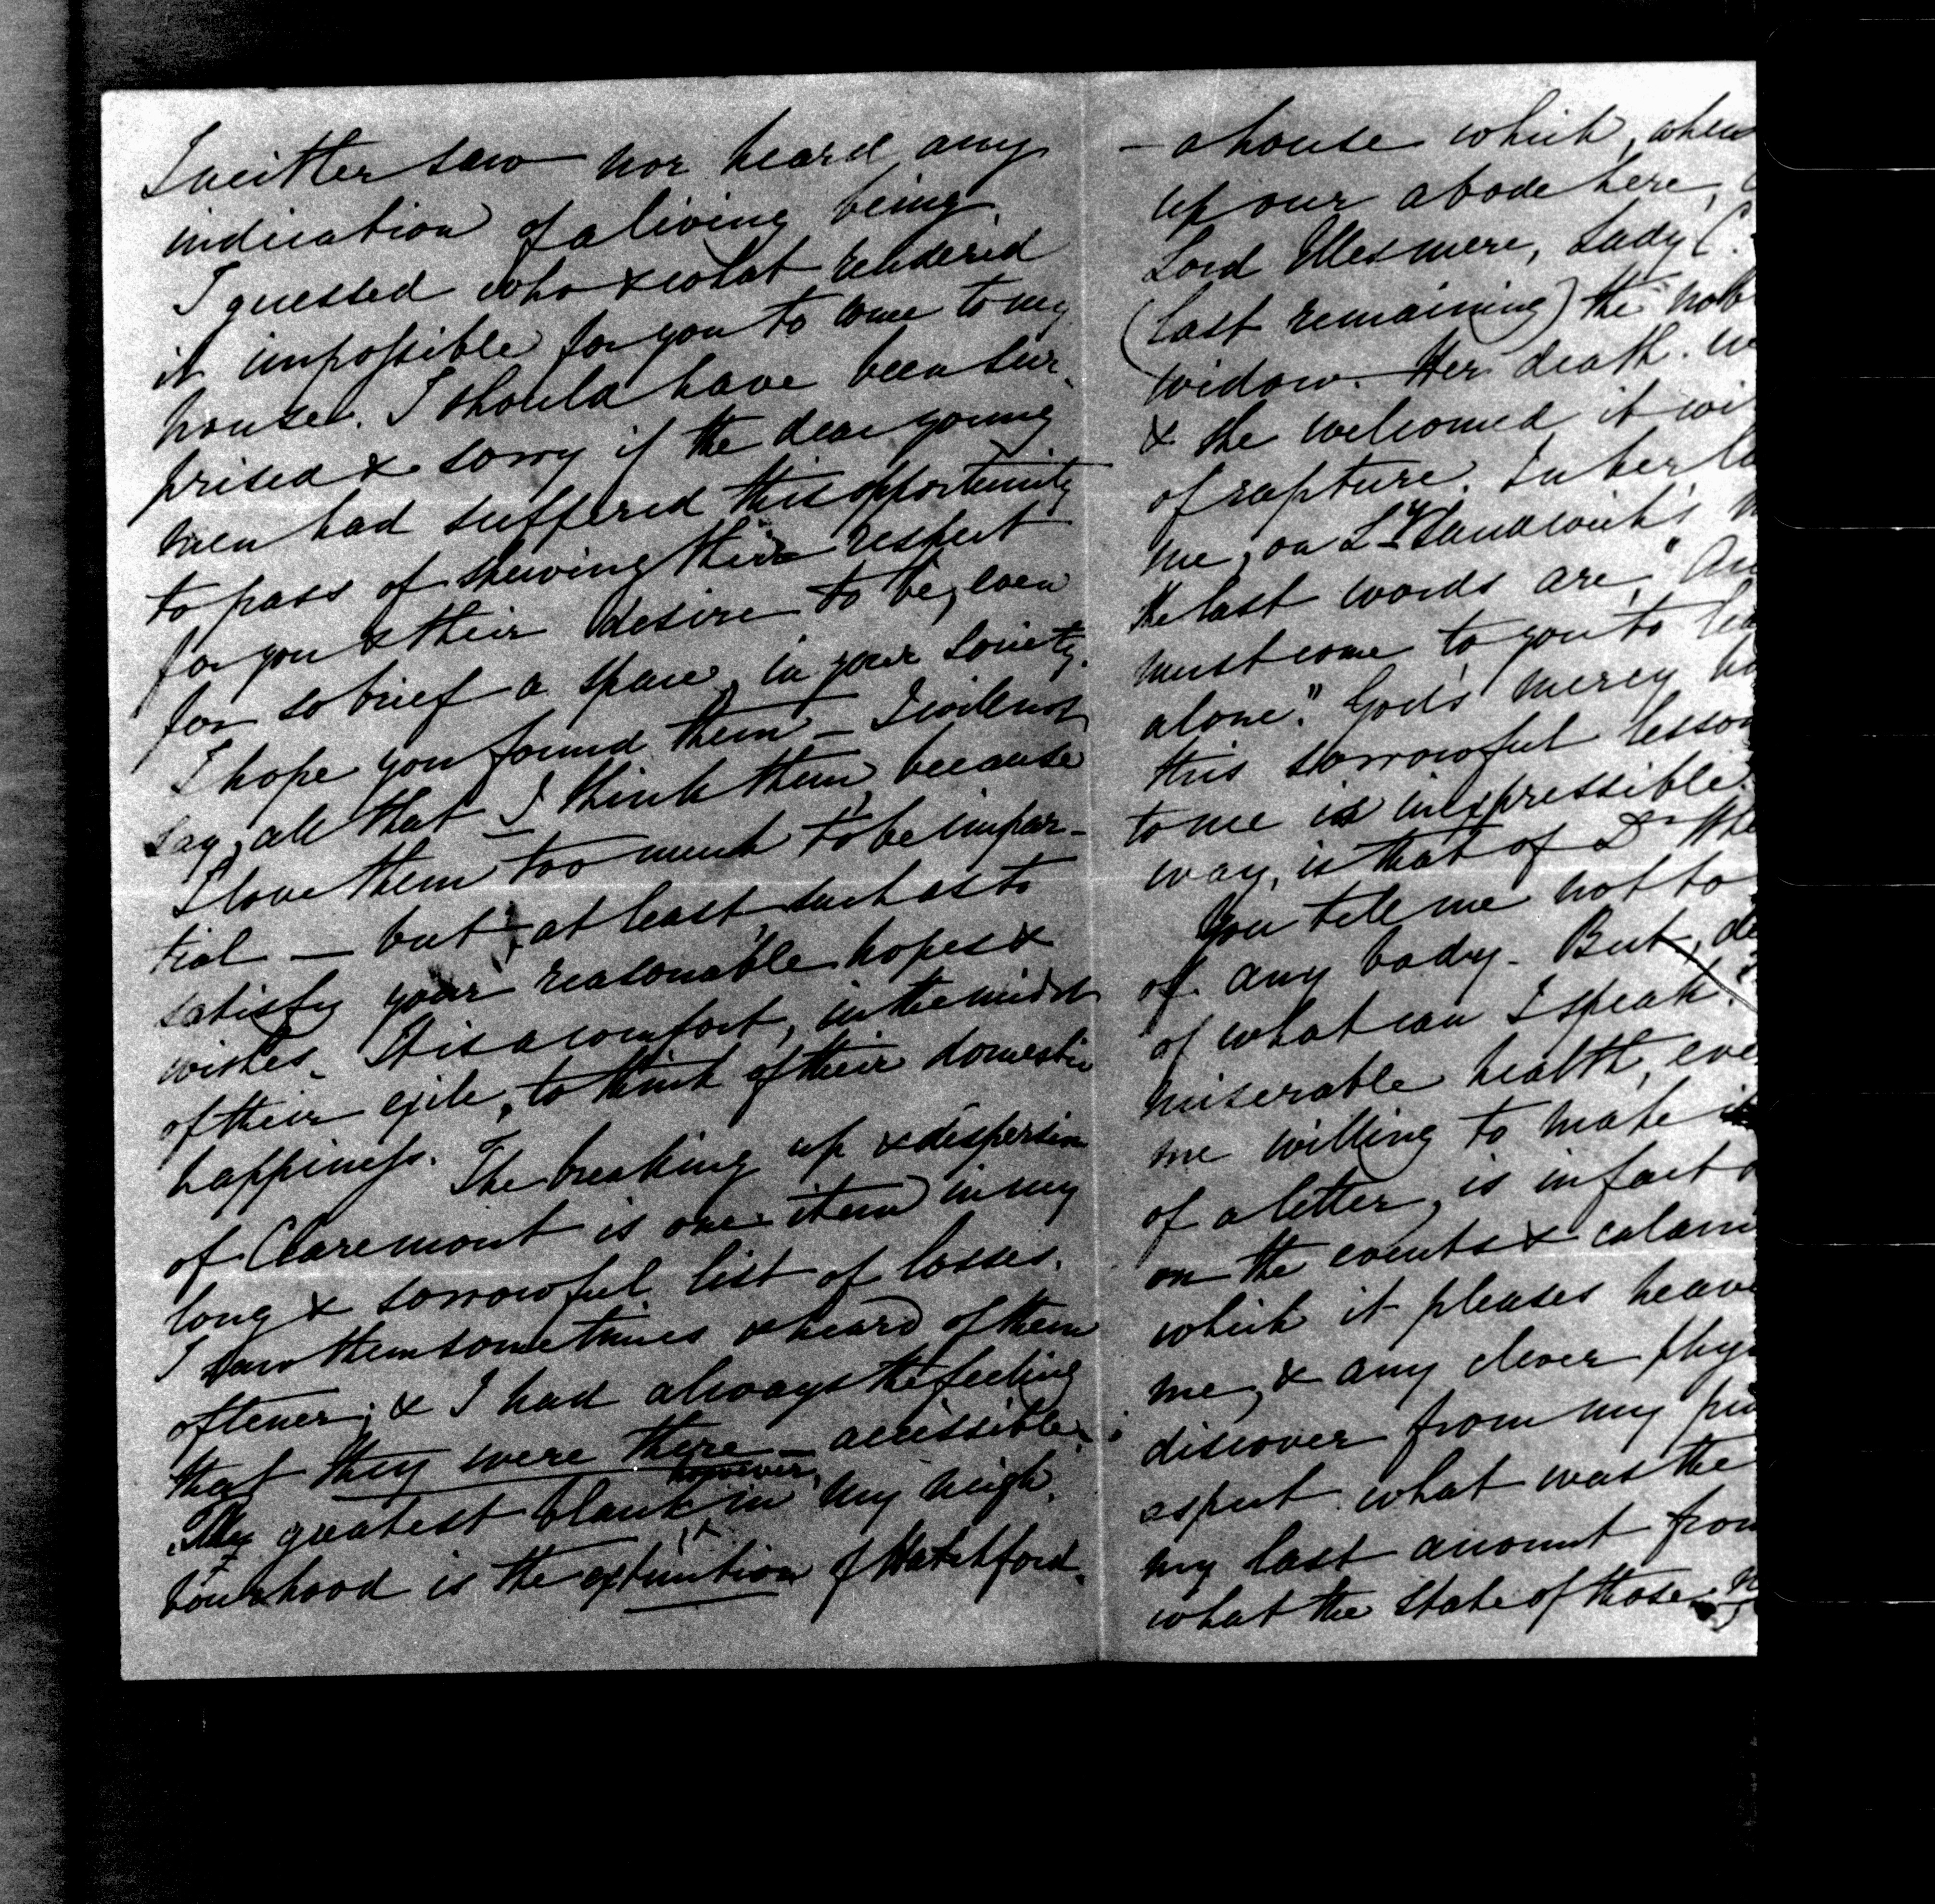 I neither saw nor heard any
indication of a living being.
I guessed who & what rendered
it impossible for you to come to my
house. I should have been sur-
prised & sorry if the dear young
men had suffered this opportunity
to pass of shewing their respect
for you & their desire to be, even
for so brief a space, in your society.
I hope you found them – I will not
say, all that I think them, because
I love them too much to be impar-
tial – but, at least, such as to
satisfy your reasonable hopes &
wishes. It is a comfort, in the midst
of their exile, to think of their domestic
happiness. The breaking up & dispersion
of Claremont is one item in my
long & sorrowful list of losses.
I saw them sometimes & heard of them
oftener; & I had always the feeling
that they were there – accessible.
The greatest blank however, in my neigh-
bourhood is the extinction of Hatchford.
– a house which, when
up our abode here,
Lord Ellesmere, Lady C.
(last remaining) the nob
widow. Her death
& she welcomed it wi
of rapture. In her la
me, on Ly Sandwich's
the last words are, "An
must come to you to lea
alone." God's mercy
this sorrowful lesson
to me is inexpressible.
way, is that of Dr
You tell me not to
of any body. But, de
of what can I speak?
miserable health, eve
me willing to make it
of a letter, is in fact
on the events & calam
which it pleases heave
me, & any clever phys
discover from my
aspect what was the
my last account from
what the state of those